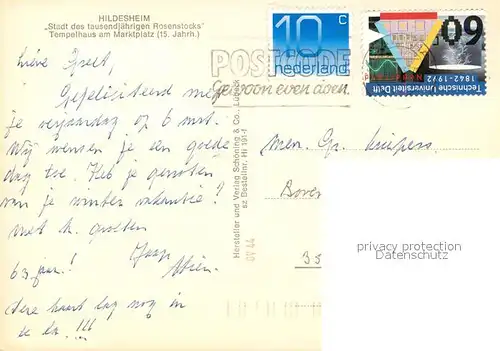 HILDESHEIM
„Stadt des tausendjährigen Rosenstocks"
Tempelhaus am Marktplatz (15. Jahrh.)
Lieve Greet,
Gefeliciteerd met
je verjaardag op 6 mrt.
Wij wensen je een goede
dag toe. Heb je genoten
van je winter vakantie?
met h. groeten
Jaap
Wien.
63 jaar!
deze kaart lag nog in
de la.!!!
Hersteller und Verlag Schöning & Co., Lübeck
sz Bestellnr. Hi 191-f
OV 44
10 c
nederland
POSTCODE
Gewoon even doen.
60
Technische Universiteit Delft
1842-1992
Mevr. Gr.
Boven
35
privacy protection
Datenschutz